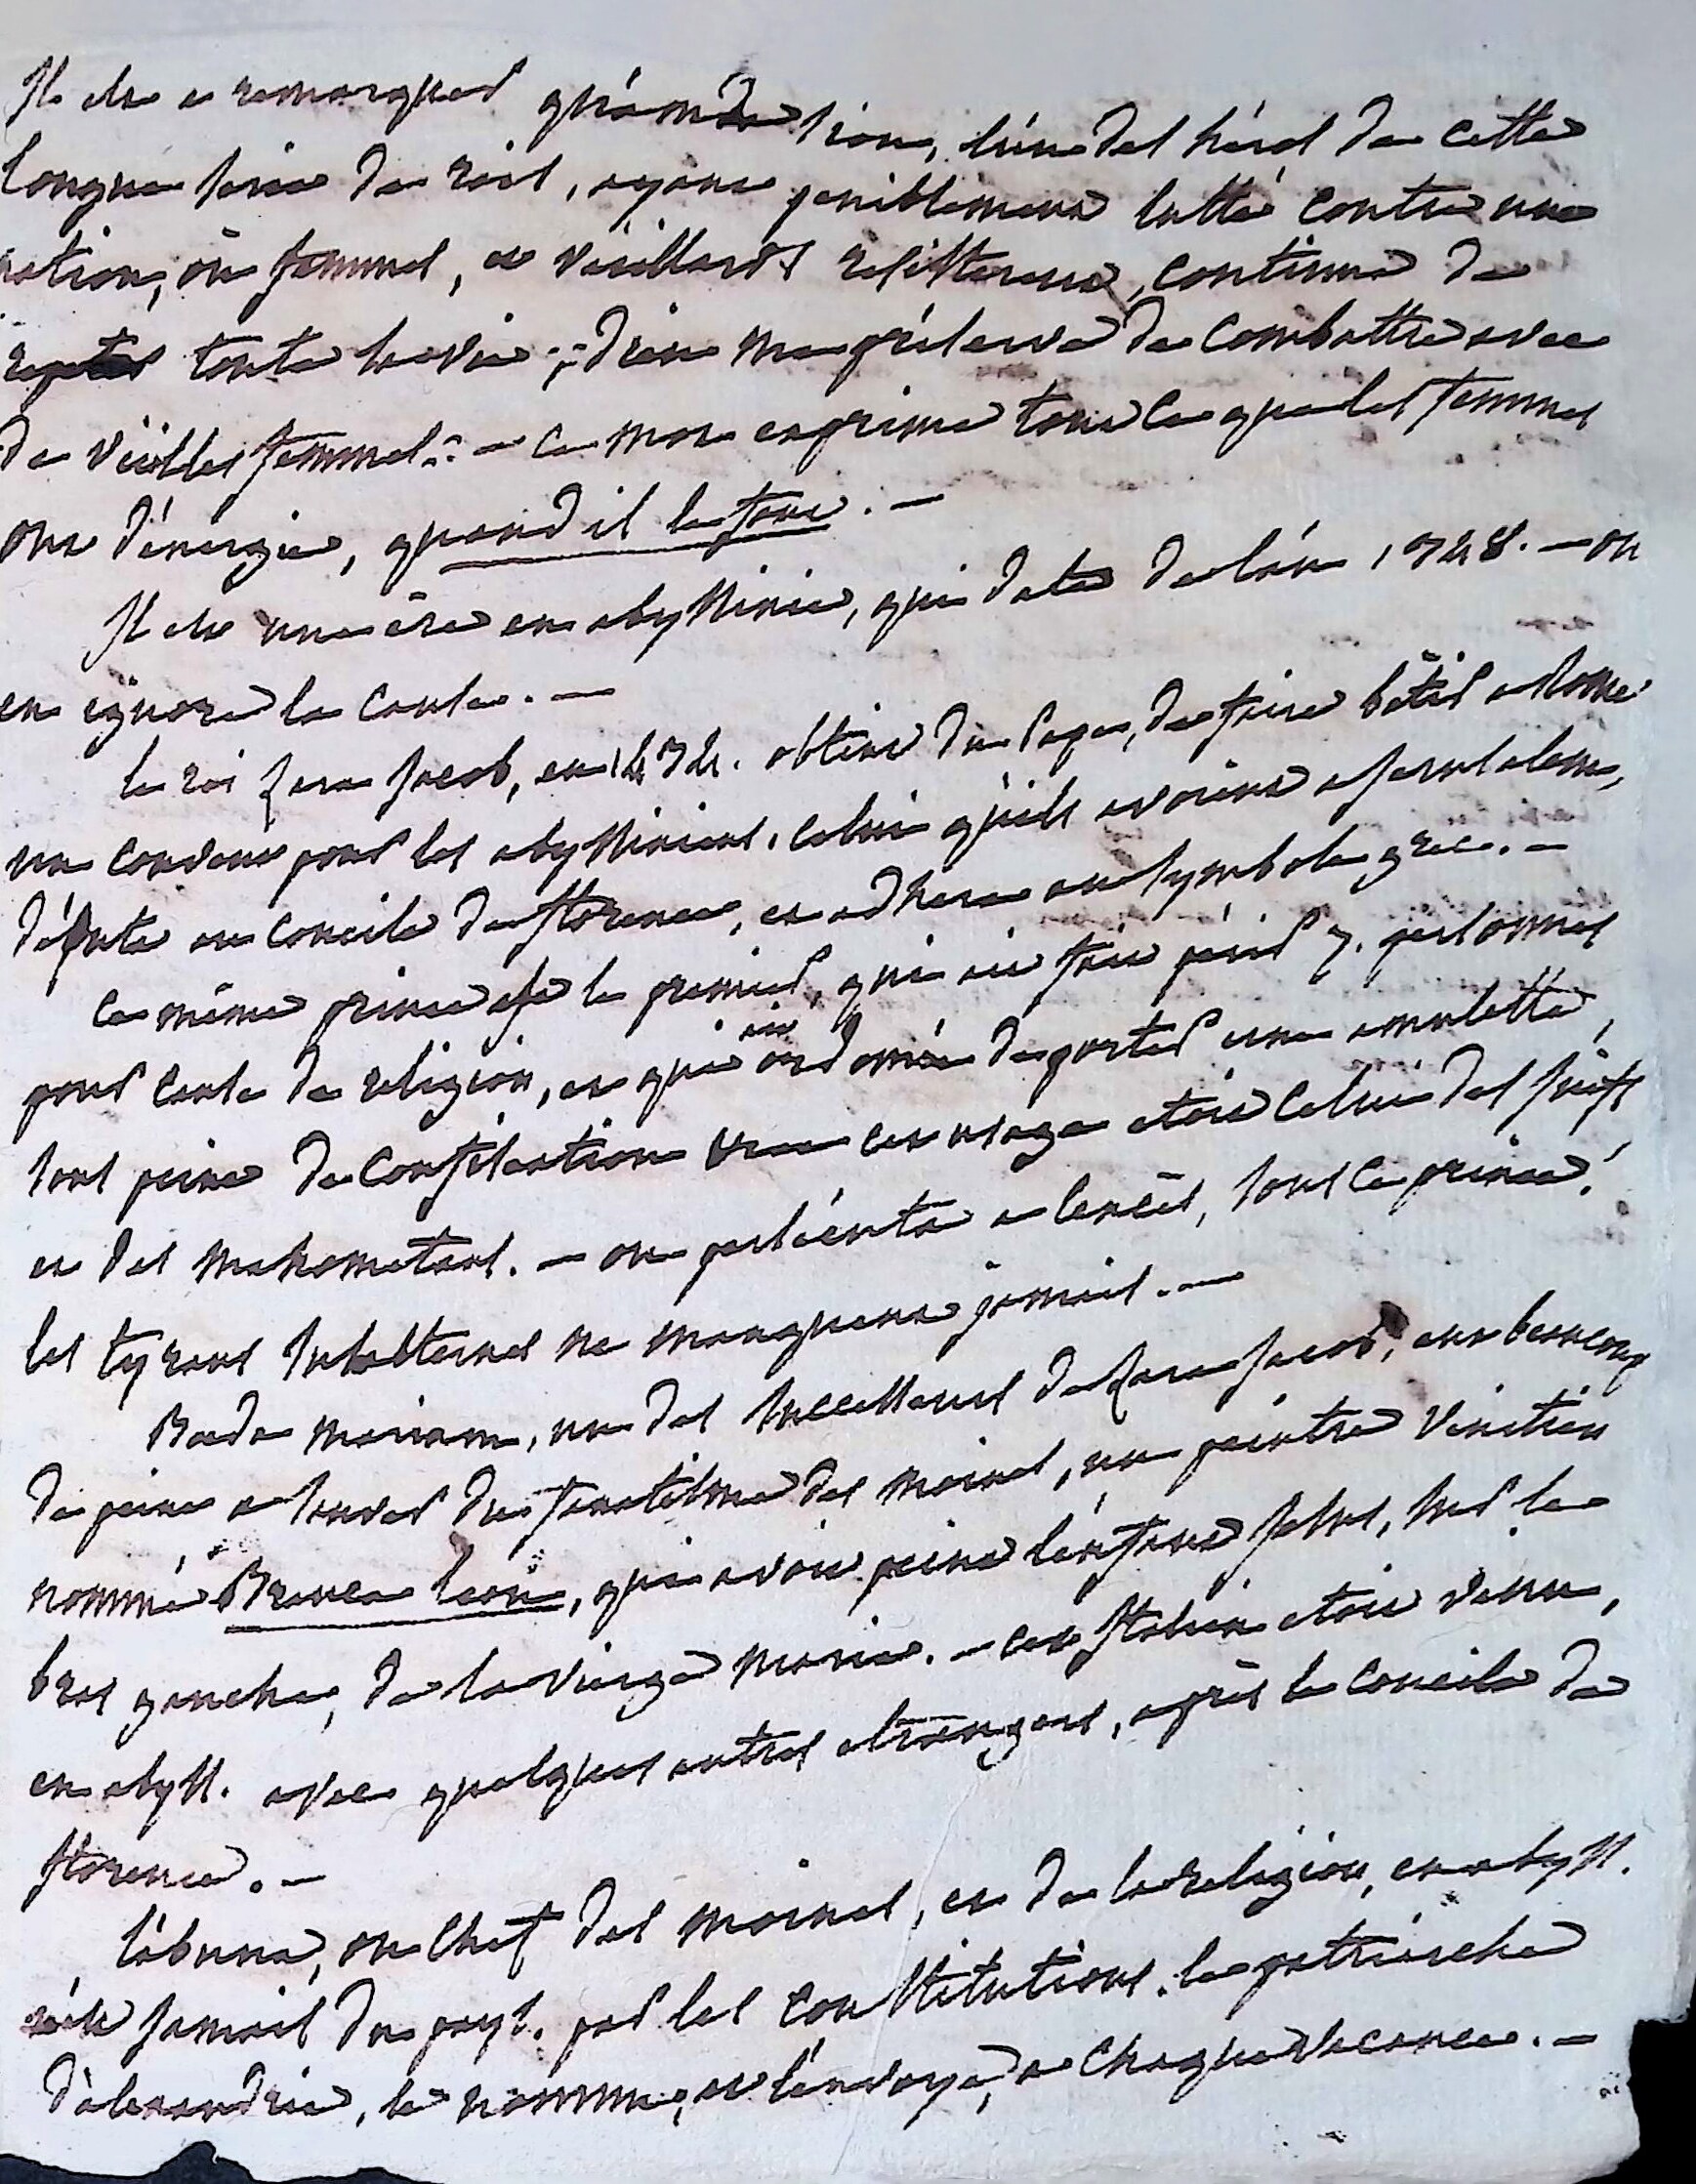 Il est a remarquer qu'amda sion, l'un des héros de cette
longue serie de rois, ayant peniblement lutté contre une
nation, où femmes, et vieillards resisterent, continua de
repeter toute sa vie : dieu me préserve de combattre avec
de vieilles femmes. - ce mot exprime tout ce que les femmes
ont d'énergie, quand il le faut. -
Il est une ére en abyssinie, qui date de l'an 1348. - on
en ignore la cause. -
le roi Zara Jacob, en 1434. obtint du Pape, de faire bâtir a Rome
un couvent pour les abyssiniens. celui qu'ils avoient a Jerusalem,
députa au concile de florence, et adhera au symbole grec. -
ce même prince est le premier, qui ait fait périr 7. personnes
pour cause de religion, et qui ait ordonné de porter une amulette,
sous peine de confiscation cet usage etoit celui des juifs
et des mahometans. - on persécuta a l'excès, sous ce prince.
les tyrans subalternes ne manquent jamais. -
Baeda mariam, un des successeurs de Zara Jacob, eut beaucoup
de peine a sauver du fanatisme des moines, un peintre venitien
nommé Branca leon, qui avoit peint l'enfant Jesus, sur le
bras gauche, de la vierge marie. - cet Italien etoit venu,
en abyss. avec quelques autres etrangers, après le concile de
florence. -
l'abuna, ou chef des moines, et de la religion, en abyss.
n'est jamais du pays. par les constitutions. le patriarche
d'alexandrie, le nomme, et l'envoye, a chaque vacance. -